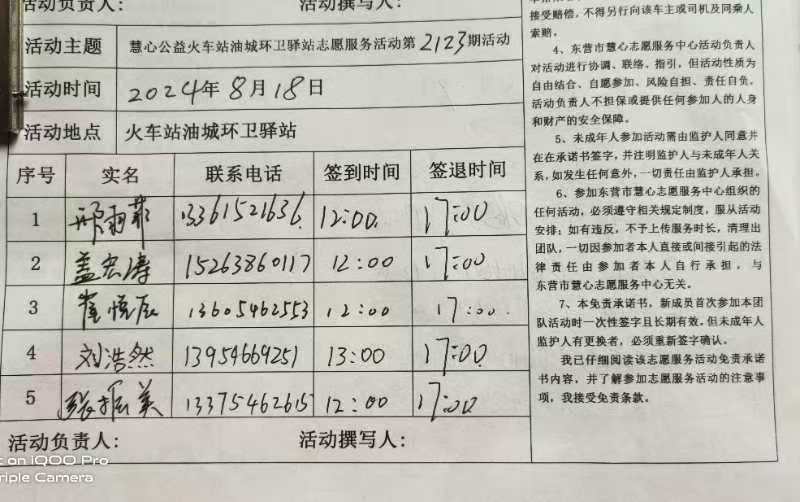 活动负责人： 活动撰写人：
活动主题 慧心公益火车站油城环卫驿站志愿服务活动第2123期活动
活动时间 2024年8月18日
活动地点 火车站油城环卫驿站
序号 实名 联系电话 签到时间 签退时间
1 13361521636 12:00 17:00
2 盖宏涛 15263860117 12:00 17:00
3 崔恒辰 13605462553 12:00 17:00
4 刘浩然 13954669251 13:00 17:00
5 张振美 13375462615 12:00 17:00
活动负责人： 活动撰写人：
接受赔偿，不得另行向该车主或司机及同乘人
索赔。
4、东营市慧心志愿服务中心活动负责人
对活动进行协调、联络、指引，但活动性质为
自由结合、自愿参加、风险自担、责任自负。
活动负责人不担保或提供任何参加人的人身
和财产的安全保障。
5、未成年人参加活动需由监护人同意并
在在承诺书签字，并注明监护人与未成年人关
系，如发生任何意外，一切责任由监护人承担。
6、参加东营市慧心志愿服务中心组织的
任何活动，必须遵守相关规定制度，服从活动
安排；如有违反，不予上传服务时长，清理出
团队，一切因参加者本人直接或间接引起的法
律责任由参加者本人自行承担，与
东营市慧心志愿服务中心无关。
7、本免责承诺书，新成员首次参加本团
队活动时一次性签字且长期有效。但未成年人
监护人有更换者，必须重新签字确认。
我已仔细阅读该志愿服务活动免责承诺
书内容，并了解参加志愿服务活动的注意事
项，我接受免责条款。
on iQOO Pro
riple Camera